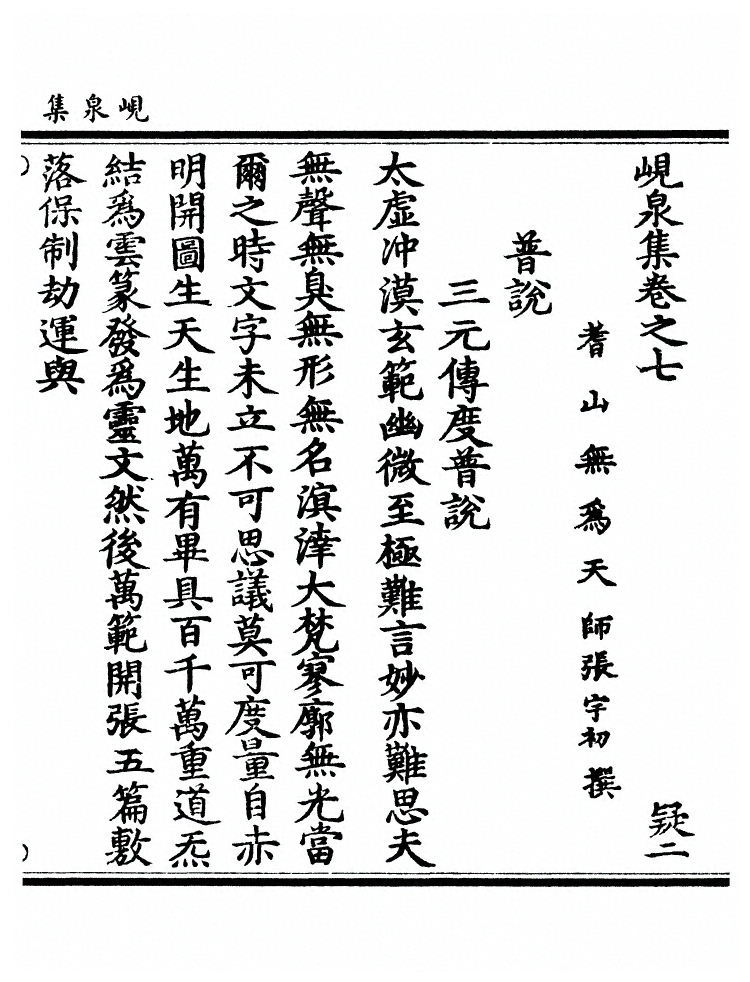 峴泉集
峴泉集卷之七　疑二
耆山無爲天師張宇初撰
普說
三元傳度普說
太虛冲漠玄範幽微至極難言妙亦難思夫
無聲無臭無形無名溟涬大梵寥廓無光當
爾之時文字未立不可思議莫可度量自赤
明開圖生天生地萬有畢具百千萬重道炁
結爲雲篆發爲靈文然後萬範開張五篇敷
落保制劫運與